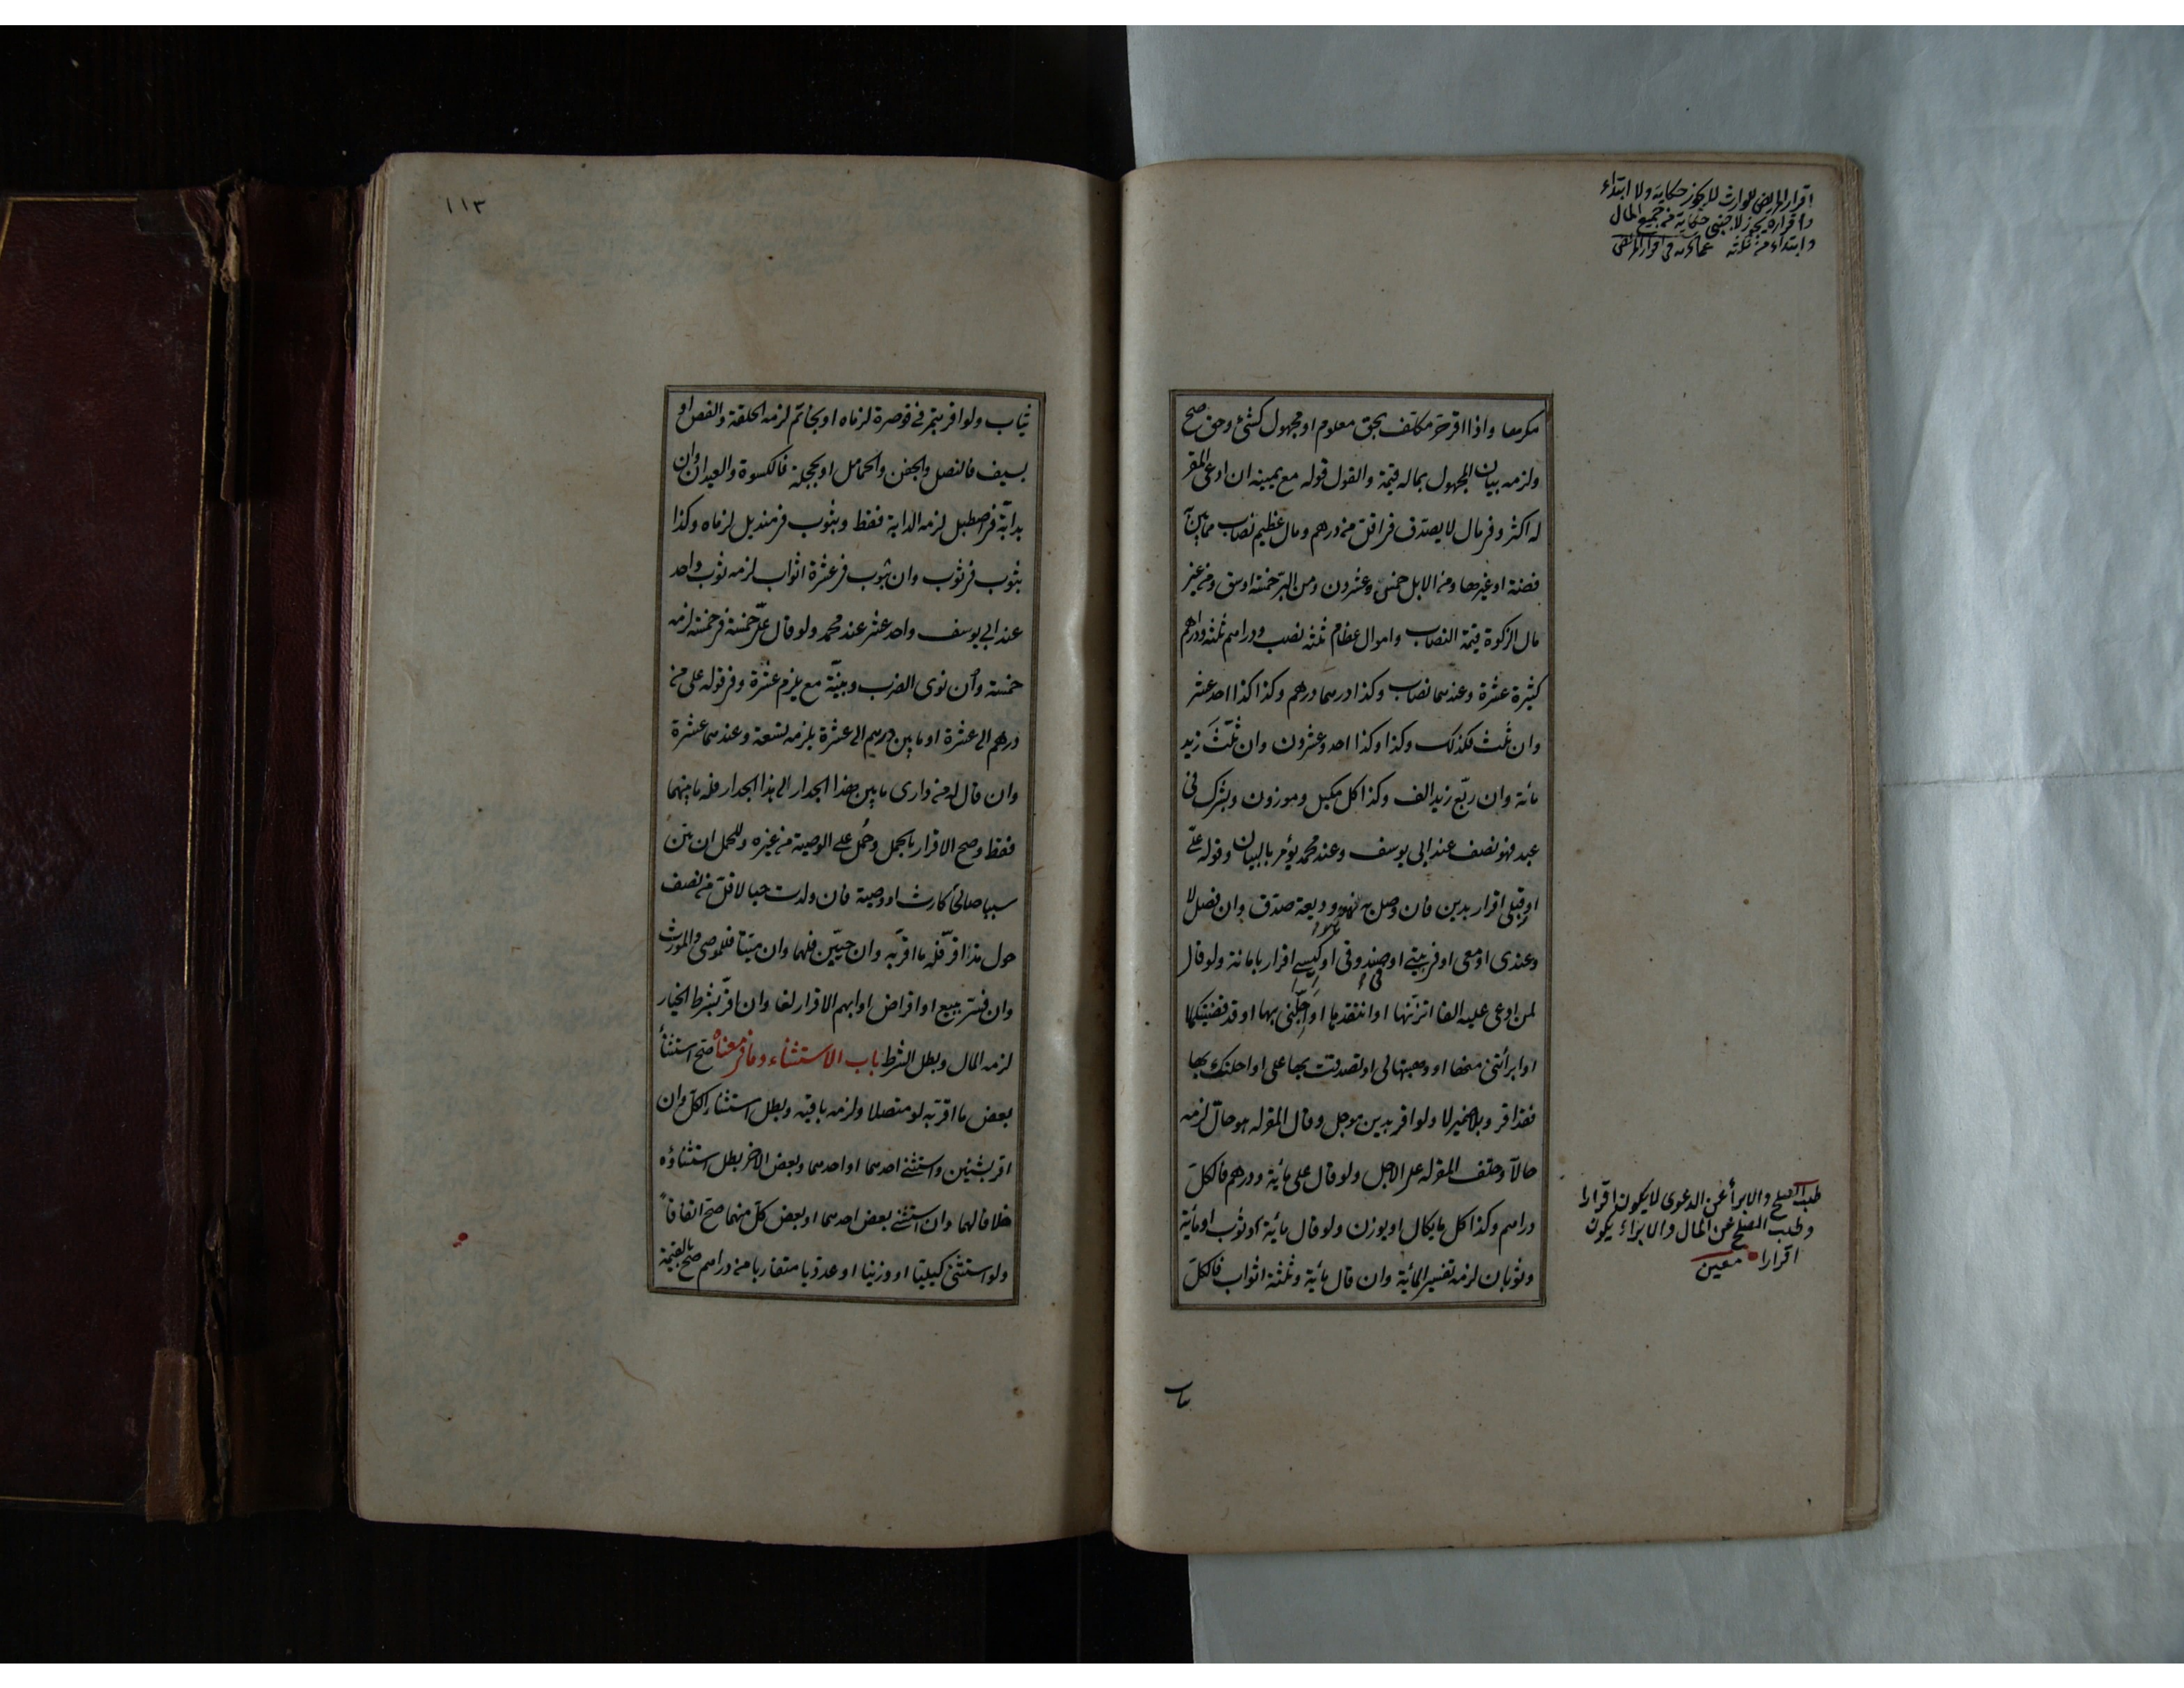 اقرار المريض للوارث لا يجوز حكاية ولا ابتداء
واقراره يجوز لاجنبي حكاية من جميع المال
وابتداء من ثلثه عمادية في اقرار المريض
مكرها واذا اقر حر مكلف بحق معلوم او مجهول كشئ وحق صح
ولزمه بيان المجهول بماله قيمة والقول قوله مع يمينه ان ادعى المقر
له اكثر وفي مال لا يصدق في اقل من درهم ومال عظيم نصاب مما بين
فضة او غيرها ومن الابل خمس وعشرون ومن البر خمسة اوسق ومن غير
مال الزكوة قيمة النصاب واموال عظام ثلثة نصب ودراهم ثلثة ودراهم
كثيرة عشرة وعندهما نصاب وكذا درهما درهم وكذا كذا احد عشر
وان ثلث فكذلك وكذا وكذا احد وعشرون وان ثلّث زيد
مائة وان ربّع زيد الف وكذا كل مكيل وموزون وبشرك في
عبد فهو نصف عند ابي يوسف وعند محمد يؤمر بالبيان وقوله عليّ
او قبلي اقرار بدين فان وصل به هو وديعة صدق وان فصل لا
وعندى او معى او في بيتي او صندوقى او كيسي اقرار بامانة ولو قال
لمن ادعى عليه الفا اتزنها او انتقدها او اجّلني بها او قد قضيتكها
او ابرأتني منها او وهبتها لى او تصدقت بها على او احلتك بها
فقد اقر وبلا ضمير لا ولو اقر بدين موجل وقال المقر له هو حالّ لزمه
حالّا وحلف المقر له على الاجل ولو قال على مائة ودرهم فالكلّ
دراهم وكذا كل ما يكال او يوزن ولو قال مائة وثوب او مائة
وثوبان لزمه تفسير المائة وان قال مائة وثلثة اثواب فالكلّ
طلب الصلح والابرأ عن الدعوى لا يكون اقرارا
وطلب الصلح عن المال والابراء يكون
اقرارا معين
ثياب
١١٣
ثياب ولو اقر بتمر في قوصرة لزماه او بخاتم لزمه الحلقة والفص او
بسيف فالنصل والجفن والحمائل او بحجلة فالكسوة والعيدان وان
بدابّة في اصطبل لزمه الدابة فقط وبثوب في منديل لزماه وكذا
بثوب في ثوب وان بثوب في عشرة اثواب لزمه ثوب واحد
عند ابي يوسف واحد عشر عند محمد ولو قال عليّ خمسة في خمسة لزمه
خمسة وان نوى الضرب وبنيّة مع يلزم عشرة وفي قوله على من
درهم الى عشرة او ما بين درهم الى عشرة يلزمه تسعة وعندهما عشرة
وان قال له من دارى ما بين هذا الجدار الى هذا الجدار فله ما بينهما
فقط وصح الاقرار بالحمل وحُمل على الوصية من غيره وللحمل ان بيّن
سببا صالحا كارث او وصية فان ولدت حيا لاقل من نصف
حول مذ اقر فله ما اقر به وان حيّين فلهما وان ميتا فللموصى والمورث
وان فسّر ببيع او اقراض او ابهم الاقرار لغا وان اقر بشرط الخيار
لزمه المال وبطل الشرط باب الاستثناء وما في معناه صحّ استثنأ
بعض ما اقر به لو متصلا ولزمه باقيه وبطل استثناء الكلّ وان
اقر بشيئين واستثنى احدهما او احدهما وبعض الاخر بطل استثناؤه
خلافا لهما وان استثنى بعض احدهما او بعض كلّ منهما صحّ اتفاقا
ولو استثنى كيليّا او وزنيا او عدديا متقاربا من دراهم صح بالقيمة